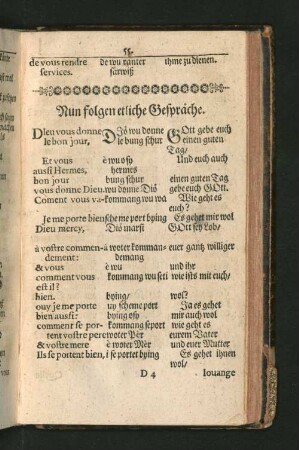 55
de vous rendre de wu ranter ihme zu dienen.
services. särwiß
Nun folgen etliche Gespräche.
Dieu vous donne Diö wu donne Gott gebe euch
le bon jour, le bung schur einen guten
Tag/
Et vous è wu oß Und euch auch
aussi Hermes, hermes
bon jour bung schur einen guten Tag
vous donne Dieu. wu donne Diö gebe euch GOtt.
Coment vous va- kommang wu wa Wie geht es
euch?
Je me porte bien sche me port bying Es gehet mir wol
Dieu mercy, Diö marsi GOtt sey Lob/
à vostre commen- à woter komman- euer gantz williger
dement: demang
& vous è wu und ihr
comment vous kommang wu seti wie ists mit euch/
est il?
bien. bying/ wol?
ouy je me porte uy sche me port Ja es gehet
bien aussi: bying osy mir auch wol
comment se por- kommang se port wie geht es
tent vostre pere woter Pèr eurem Vater
& vostre mere è woter Mèr und eurer Mutter
Ils se portent bien, i se portet bying Es gehet ihnen
wol/
D 4 Iouange